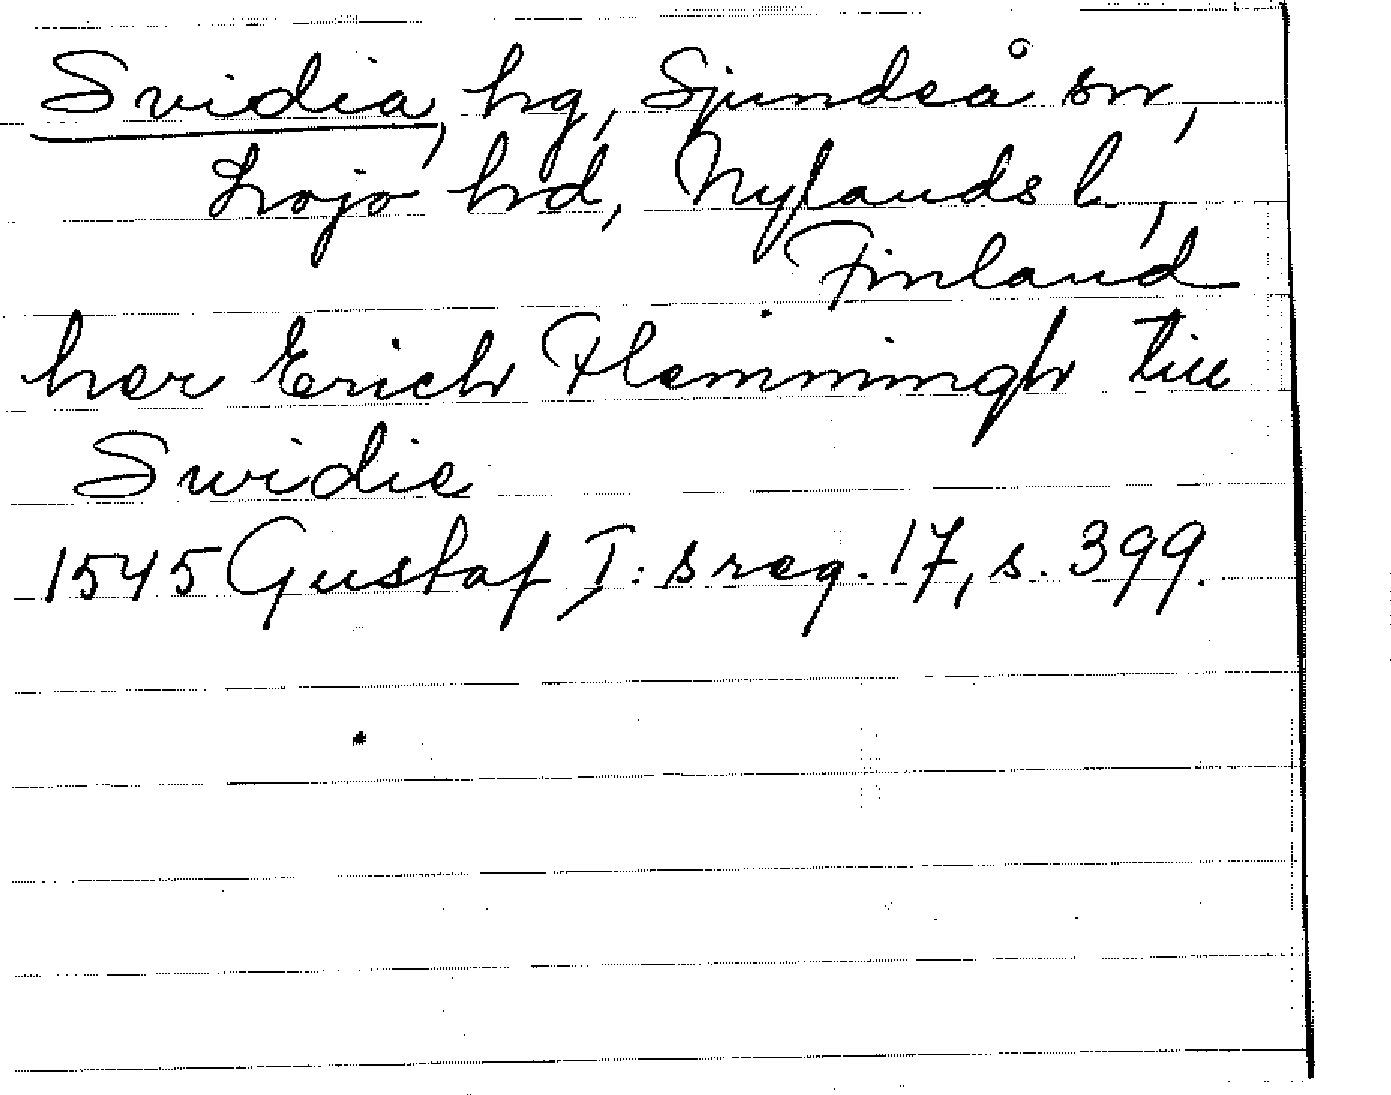 Svidia, hg, Sjundeå sn,
Lojo hd, Nylands l.,
Finland
her Erich Flemmingh till
Swidie
1545 Gustaf I:s reg. 17, s. 399.